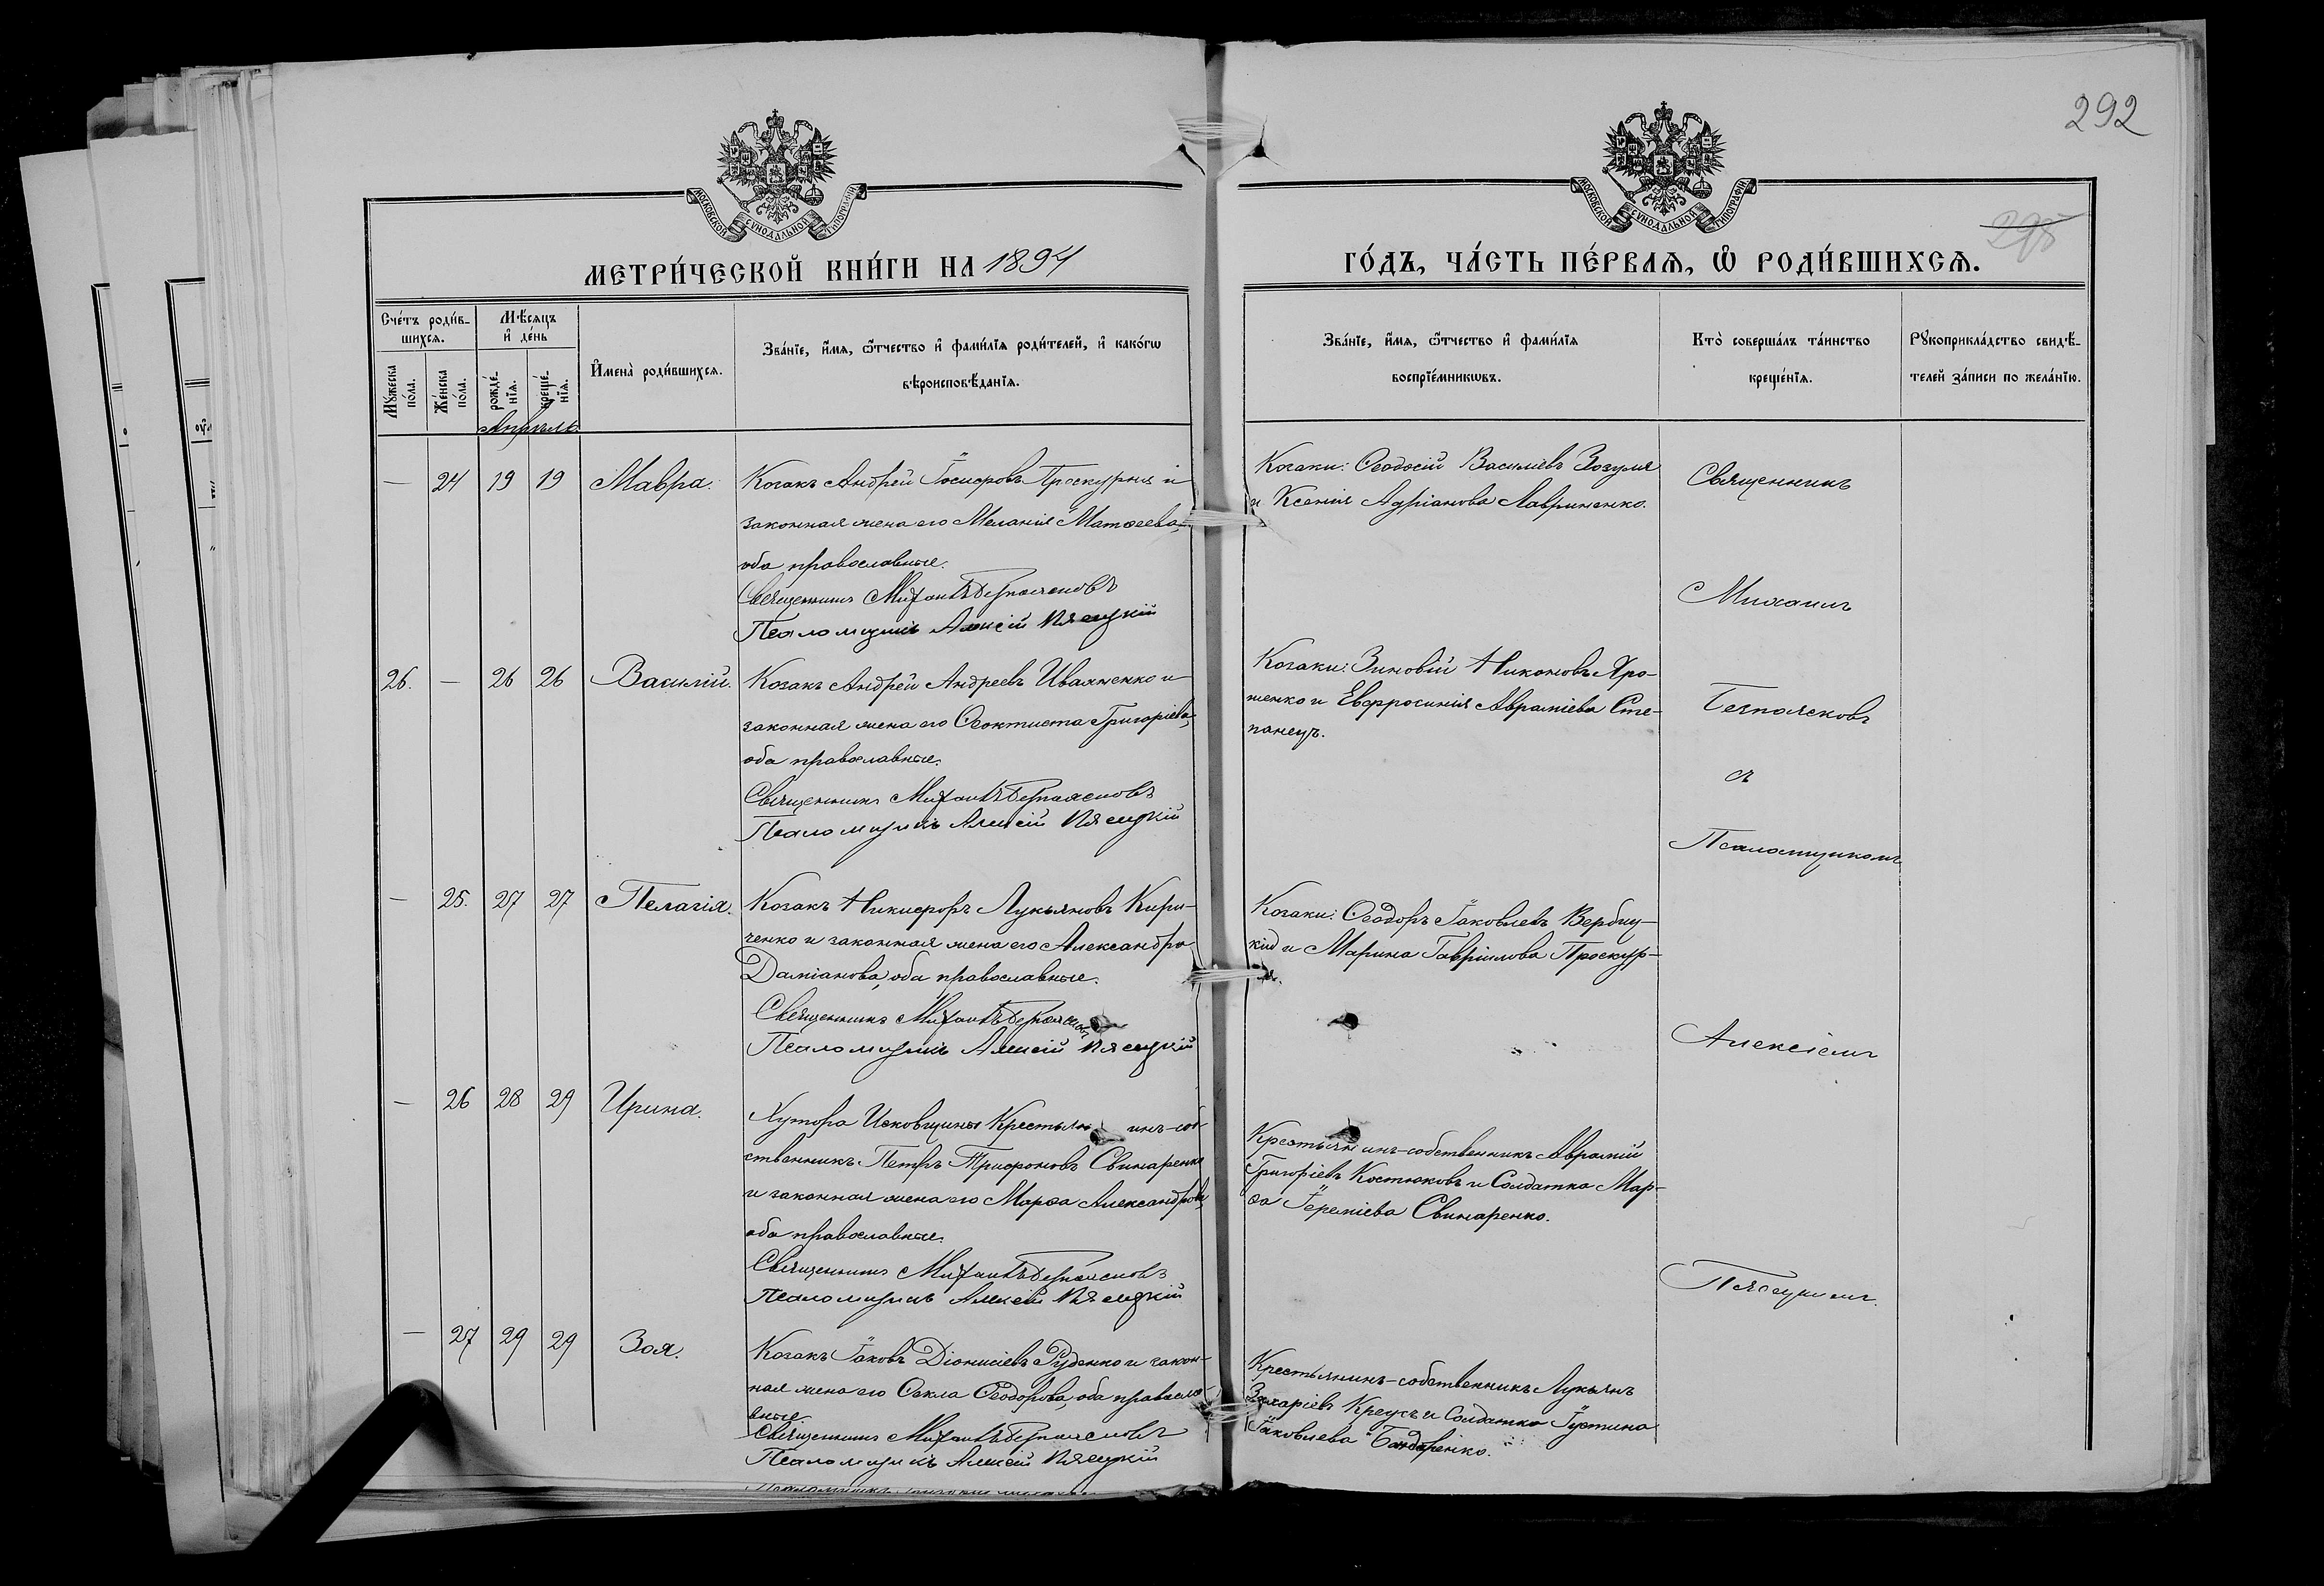 292
МОСКОВСКОЙ СѴНОДАЛЬНОЙ ТИПОГРАФІИ
МОСКОВСКОЙ СѴНОДАЛЬНОЙ ТИПОГРАФІИ
МЕТРИ́ЧЕСКОЙ КНИ́ГИ НА 1894
ГО́ДЪ, ЧА́СТЬ ПЕ́РВАѦ, Ѽ РОДИ́ВШИХСѦ.
Сче́тъ роди́в-
шихсѧ.
Мѣ́сѧцъ
и҆ де́нь
Мꙋ́жеска по́ла.
Же́нска по́ла.
рожде́-
нїѧ.
креще́-
нїѧ.
И҆мена̀ роди́вшихсѧ.
Зва́нїе, и҆́мѧ, ѻ҆́тчество и҆ фами́лїѧ роди́телей, и҆ како́гѡ
вѣроисповѣ́данїѧ.
Зва́нїе, и҆́мѧ, ѻ҆́тчество и҆ фами́лїѧ
воспрїе́мникѡвъ.
Кто̀ соверша́лъ та́инство
креще́нїѧ.
Рꙋкоприкла́дство свидѣ́-
телей за́писи по жела́нїю.
Апрѣль.
— 24 19 19 Мавра.
Козакъ Андрей Іосифовъ Проскурня и
законная жена его Меланія Матѳеева,
оба православные.
Священникъ Михаилъ Безпоясковъ
Псаломщикъ Алексій Пясецкій
Козаки: Ѳеодосій Василіевъ Зозуля
и Ксенія Адріанова Лавриненко.
26. — 26 26 Василій.
Козакъ Андрей Андреевъ Иваненко и
законная жена его Ѳеоктиста Григоріева,
оба православные.
Священникъ Михаилъ Безпоясковъ
Псаломщикъ Алексій Пясецкій
Козаки: Зиновій Никоновъ Яро-
шенко и Евфросинія Авраміева Сте-
панецъ.
— 25. 27 27 Пелагія.
Козакъ Никифоръ Лукьяновъ Кири-
ченко и законная жена его Александра
Даміанова, оба православные.
Священникъ Михаилъ Безпоясковъ
Псаломщикъ Алексій Пясецкій
Козаки: Ѳеодоръ Іаковлевъ Вербиц-
кій и Марина Гавріилова Проскур-
ня.
— 26 28 29 Ирина.
Хутора Исковщины Крестьянинъ-соб-
ственникъ Петръ Трифоновъ Свинаренко
и законная жена его Марѳа Александрова,
оба православные.
Священникъ Михаилъ Безпоясковъ
Псаломщикъ Алексій Пясецкій
Крестьянинъ-собственникъ Аврамій
Григоріевъ Костюковъ и Солдатка Мар-
ѳа Іереміева Свинаренко.
— 27 29 29 Зоя.
Козакъ Іаковъ Діонисіевъ Руденко и закон-
ная жена его Ѳекла Ѳеодорова, оба правосла-
вные.
Священникъ Михаилъ Безпоясковъ
Псаломщикъ Алексій Пясецкій
Крестьянинъ-собственникъ Лукьянъ
Захаріевъ Креусъ и Солдатка Іустина
Іаковлева Бандаренко.
Священникъ
Михаилъ
Безпоясковъ
съ
Псаломщикомъ
Алексіемъ
Пясецкимъ.